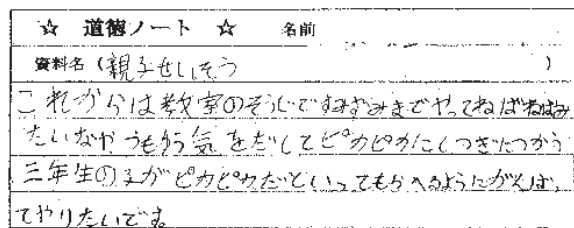 ☆ 道徳ノート ☆ 名前
資料名（親子せいそう ）
これからは教室のそうじですみずみまでやってねばねばみ
たいなやつもゆう気をだしてピカピカにしつぎにつかう
三年生の子がピカピカだといってもらへるようにがんば
てやりたいです。